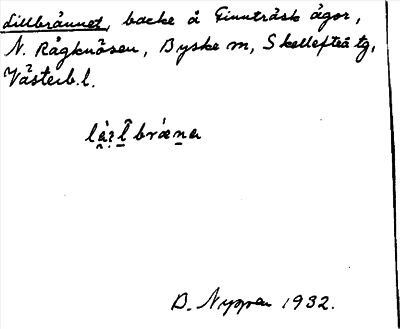 Lillbrånnet, backe å Finnträsk ägor,
N. Rågknösen, Byske sn, Skellefteå tg,
Västerb. l.
B. Nygren 1932.